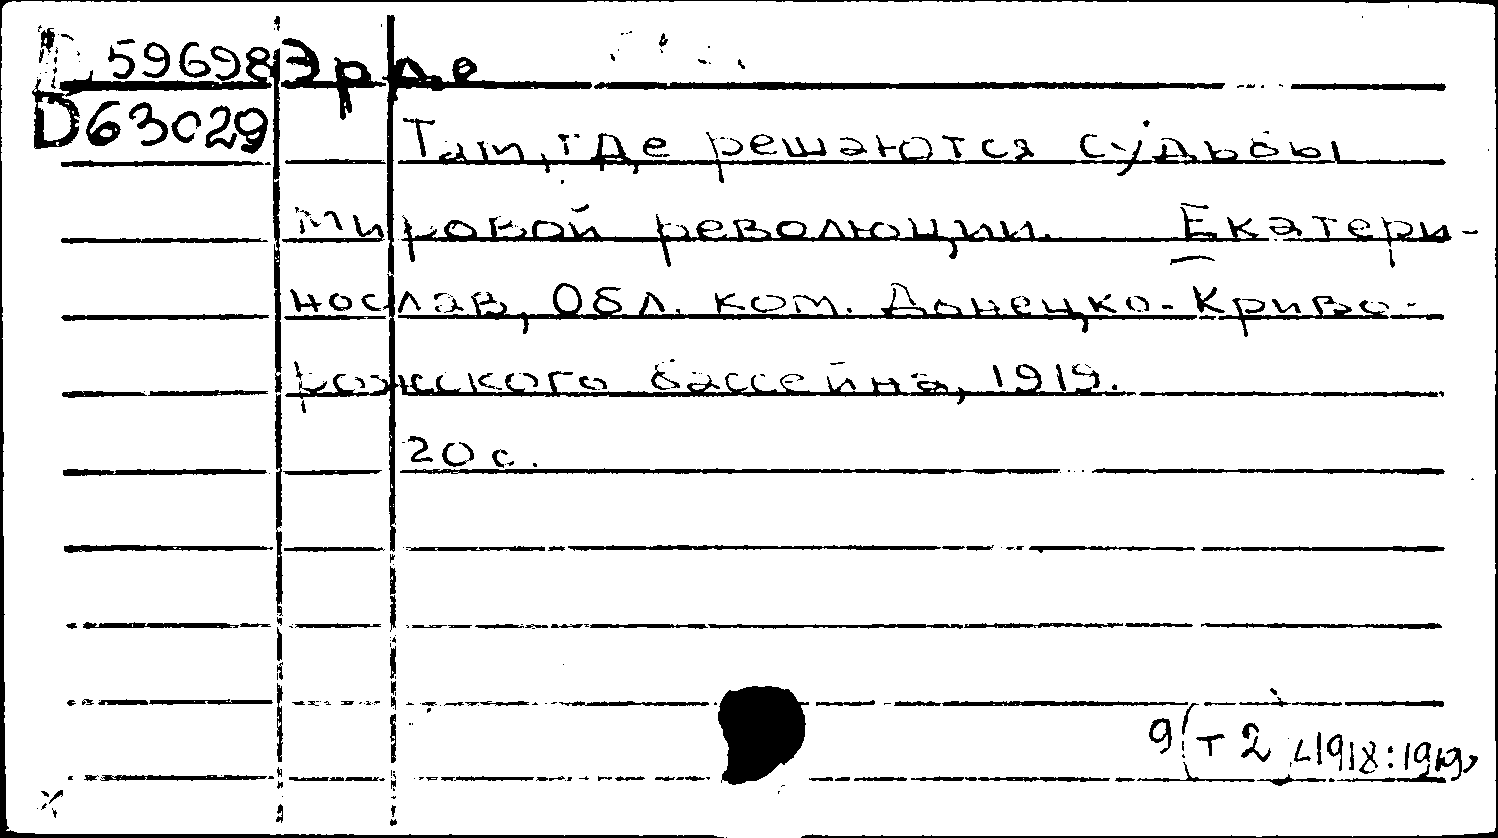 D 59698 Эрде
D63029
Там, где решаются судьбы
мировой революции. Екатери-
нослав, Обл. ком. Донецко-Криво-
рожского бассейна, 1919.
20 с.
9(т2)